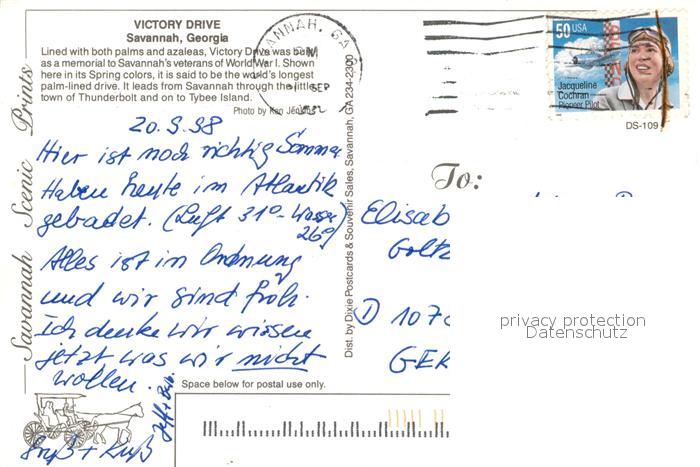 VICTORY DRIVE
Savannah, Georgia
Lined with both palms and azaleas, Victory Drive was built
as a memorial to Savannah's veterans of World War I. Shown
here in its Spring colors, it is said to be the world's longest
palm-lined drive. It leads from Savannah through the little
town of Thunderbolt and on to Tybee Island.
Photo by Ken Jenkins
Savannah Scenic Prints
20.9.98
Hier ist noch richtig Sommer
Haben heute im Atlantik
gebadet. (Luft 31° - Wasser
26°)
Alles ist in Ordnung
und wir sind froh.
Ich denke wir wissen
jetzt was wir nicht
wollen.
Gruß + Kuß
Dist. by Dixie Postcards & Souvenir Sales, Savannah, GA 234-2300
ANNAH, GA
SEP
50 USA
Jacqueline
Cochran
Pioneer Pilot
DS-109
To:
Elisab
Goltz
D 107
GER
privacy protection
Datenschutz
Space below for postal use only.